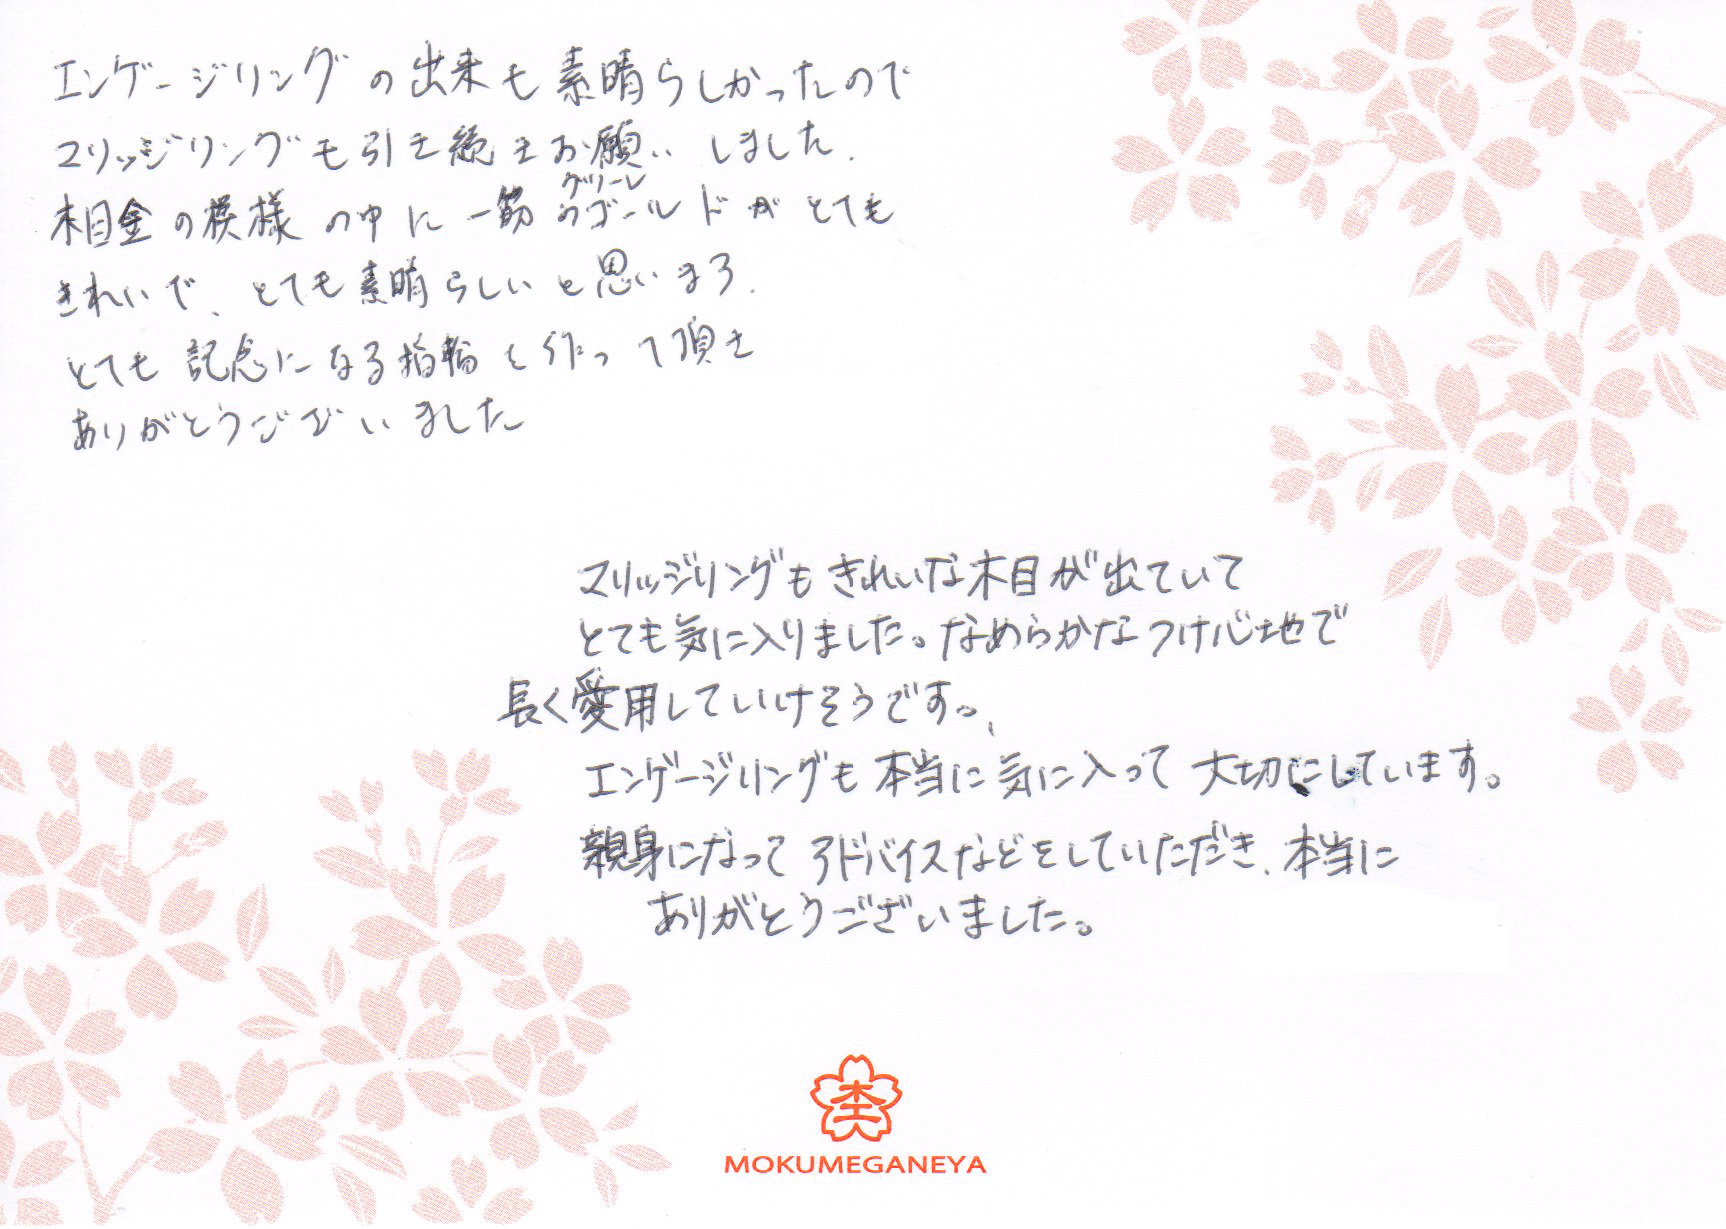 エンゲージリングの出来も素晴らしかったので
マリッジリングも引き続きお願いしました.
木目金の模様の中に一筋のグリーンゴールドがとても
きれいで、とても素晴らしいと思います.
とても記念になる指輪を作って頂き
ありがとうございました
マリッジリングもきれいな木目が出ていて
とても気に入りました。なめらかなつけ心地で
長く愛用していけそうです。
エンゲージリングも本当に気に入って大切にしています。
親身になってアドバイスなどをしていただき、本当に
ありがとうございました。
MOKUMEGANEYA